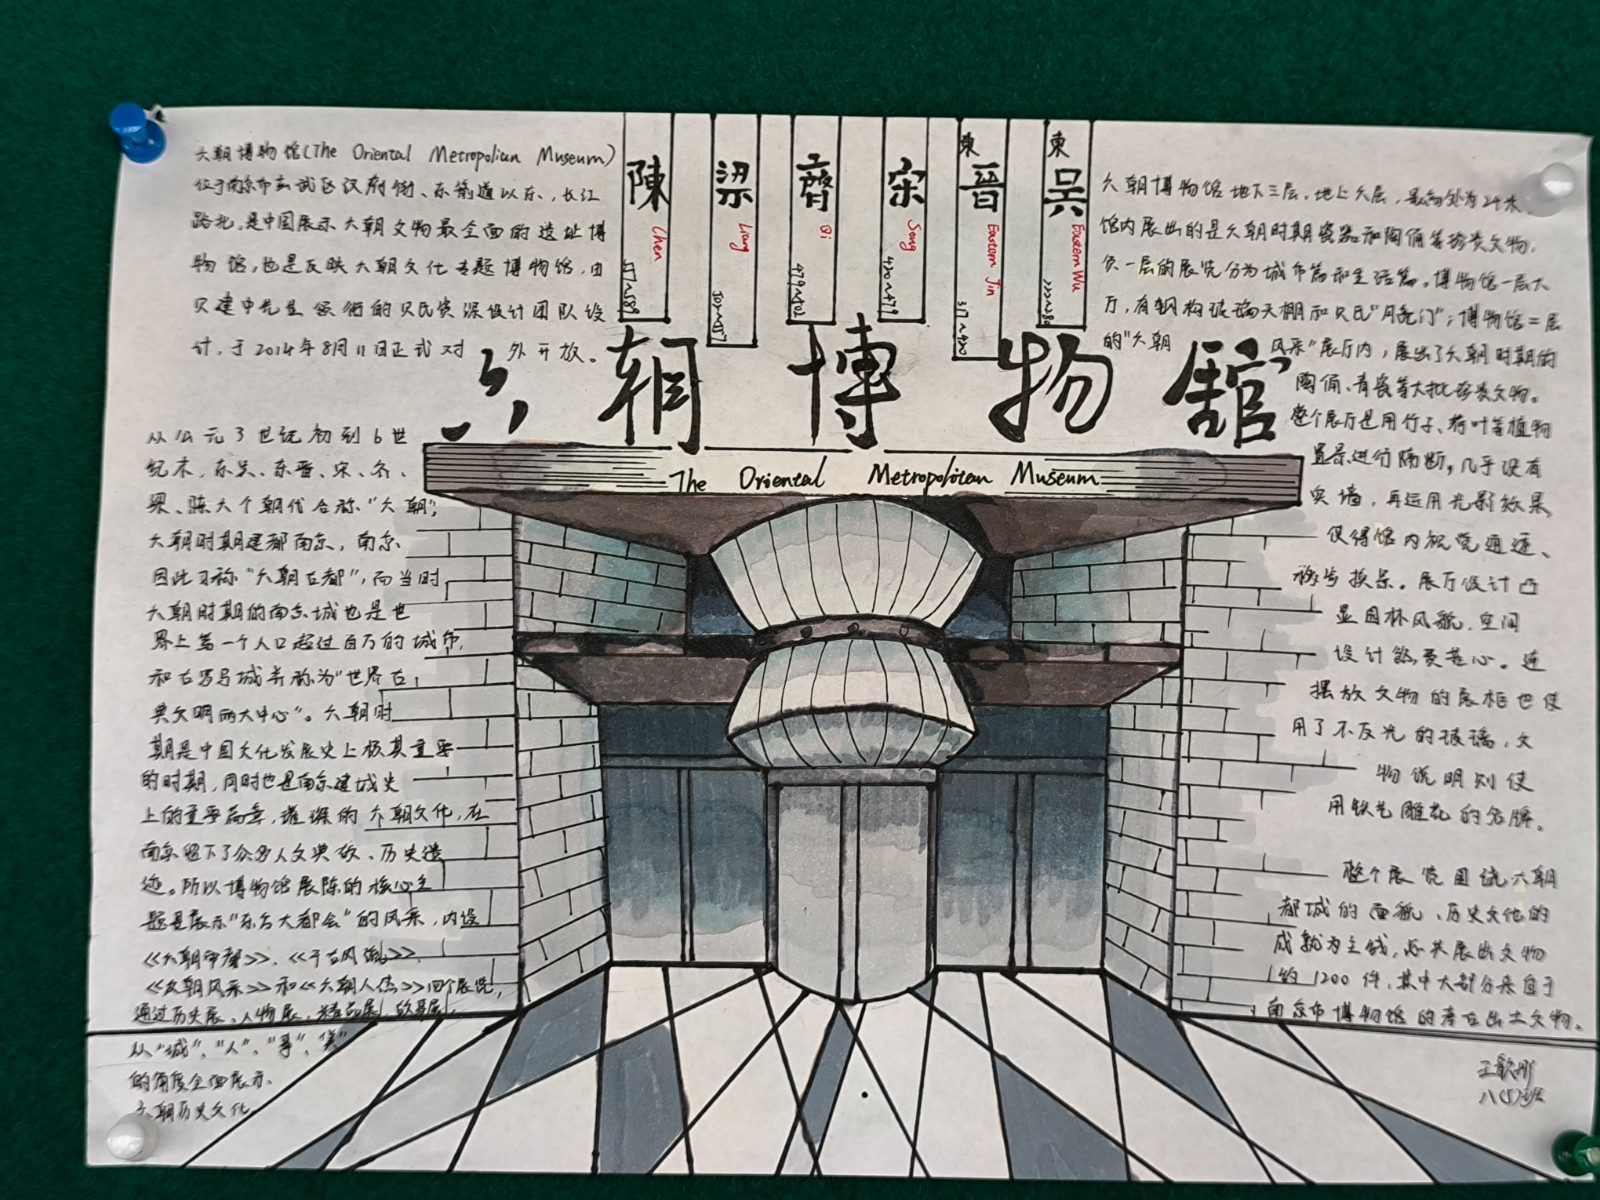 六朝博物馆(The Oriental Metropolitan Museum)
位于南京市玄武区汉府街、东箭道以东、长江
路北,是中国展示六朝文物最全面的遗址博
物馆,也是反映六朝文化专题博物馆,由
贝建中先生领衔的贝氏资深设计团队设
计,于2014年8月11日正式对外开放。
陳
Chen
557~589
梁
Liang
502~557
齊
Qi
479~502
宋
Song
420~479
東晉
Eastern Jin
317~420
東吴
Eastern Wu
222~280
六朝博物馆
The Oriental Metropolitan Museum
从公元3世纪初到6世
纪末,东吴、东晋、宋、齐、
梁、陈六个朝代合称"六朝";
六朝时期建都南京,南京
因此习称"六朝古都",而当时
六朝时期的南京城也是世
界上第一个人口超过百万的城市,
和古罗马城并称为"世界古
典文明两大中心"。六朝时
期是中国文化发展史上极其重要
的时期,同时也是南京建城史
上的重要篇章,璀璨的六朝文化,在
南京留下了众多人文典故、历史遗
迹。所以博物馆展陈的核心主
题是展示"东方大都会"的风采,内设
《六朝帝都》、《千古风流》、
《六朝风采》和《六朝人杰》四个展览,
通过历史展、人物展、精品展、
从"城"、"人"、
的角度全面展示
六朝历史文化
六朝博物馆地下三层,地上六层,最高处为24米
馆内展出的是六朝时期瓷器和陶俑等珍贵文物,
负一层的展览分为城市篇和生活篇。博物馆一层大
厅,有钢构玻璃天棚和贝氏"月亮门";博物馆二层
的"六朝风采"展厅内,展出了六朝时期的
陶俑、青瓷等大批珍贵文物。
整个展厅是用竹子、荷叶等植物
置景进行隔断,几乎没有
实墙,再运用光影效果,
使得馆内视觉通透、
移步换景。展厅设计凸
显园林风貌,空间
设计煞费苦心。连
摆放文物的展柜也使
用了不反光的玻璃,文
物说明则使
用铁艺雕花的名牌。
整个展览围绕六朝
都城的面貌、历史文化的
成就为主线,总共展出文物
约1200件,其中大部分来自于
南京市博物馆的考古出土文物。
八(5)班